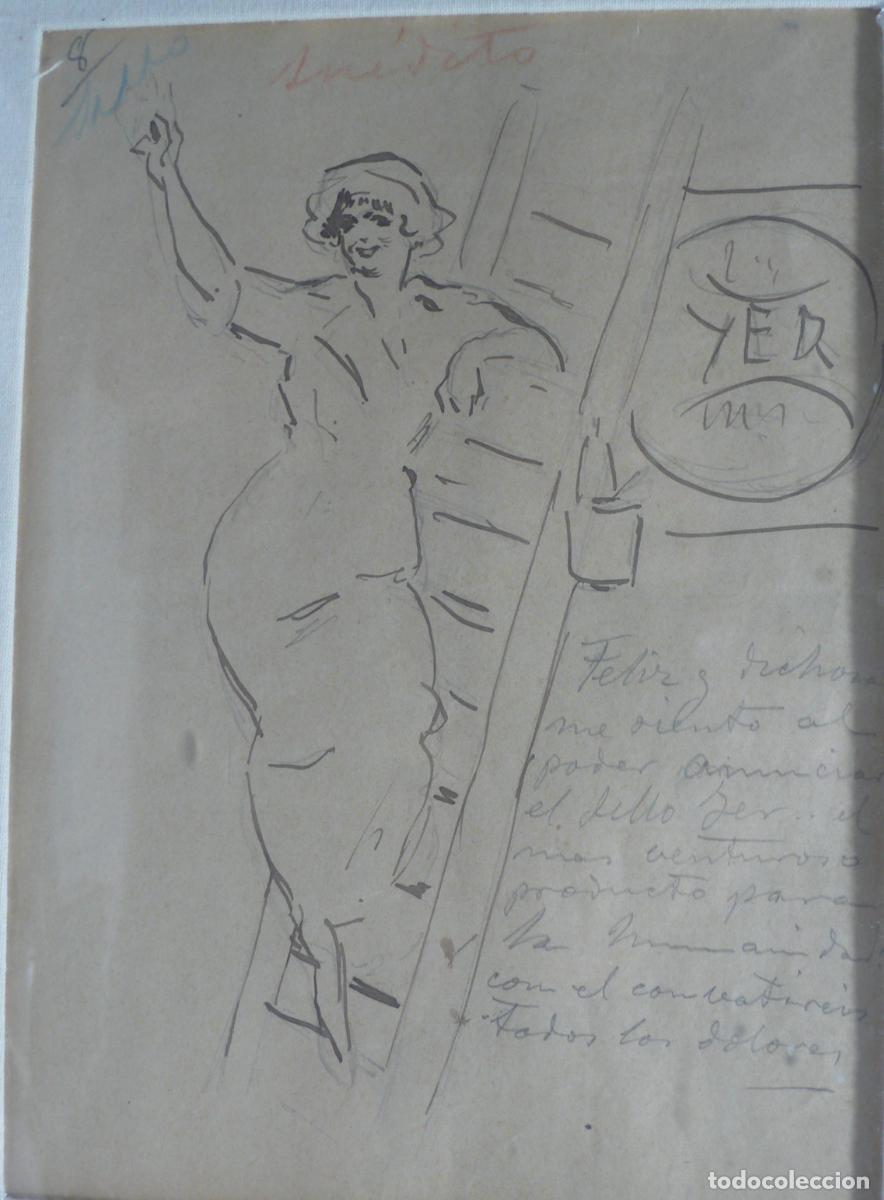 8
Inédito
YER
Feliz y dichosa
me siento al
poder anunciar
el Sello Yer.. el
mas venturoso
producto para
la Humanidad
con el convatireis
todos los dolores
todocoleccion